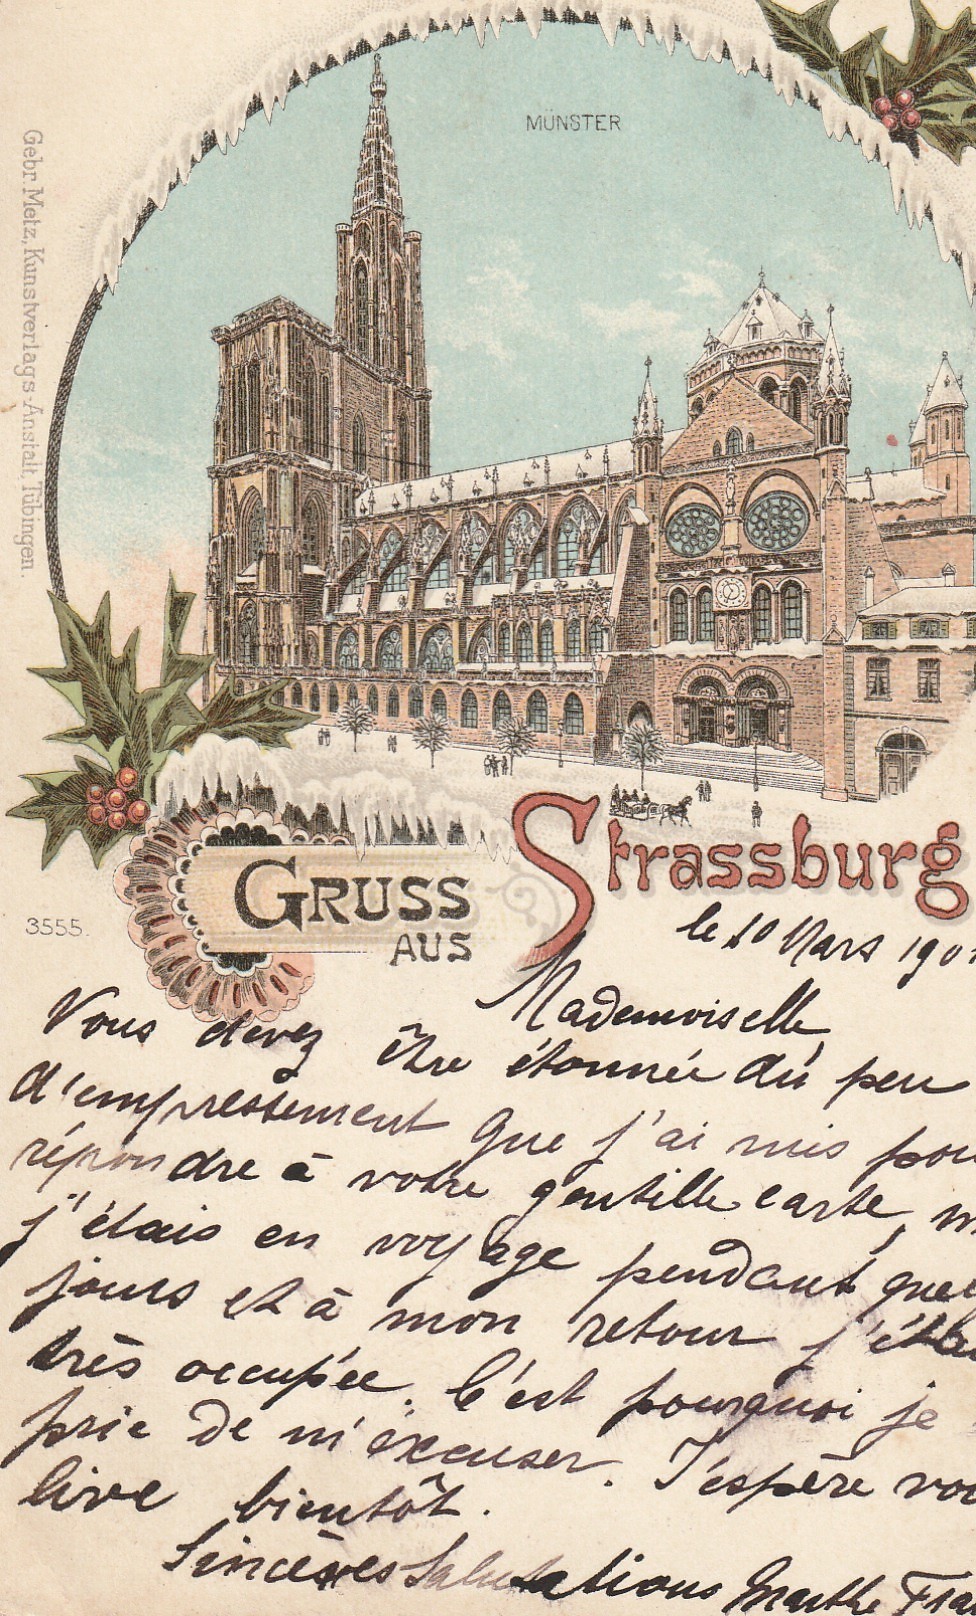 MÜNSTER
Gebr. Metz, Kunstverlags-Anstalt, Tübingen.
GRUSS
AUS
Strassburg
3555.
le 10 Mars 190
Mademoiselle,
Vous devez être étonnée du peu
d'empressement que j'ai mis pou
répondre à votre gentille carte, m
j'étais en voyage pendant quel
jours et à mon retour j'étai
très occupée. C'est pourquoi je
prie de m'excuser. J'espère vou
lire bientôt.
Sincères Salutations Marthe